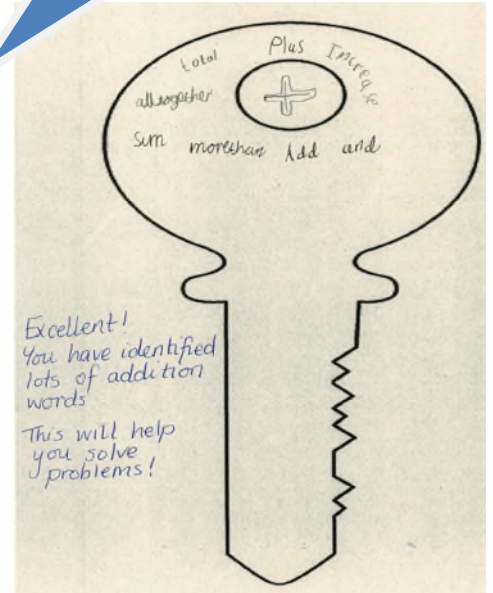 total Plus Increase
alltogether +
Sum morethan Add and
Excellent!
You have identified
lots of addition
words
This will help
you solve
problems!